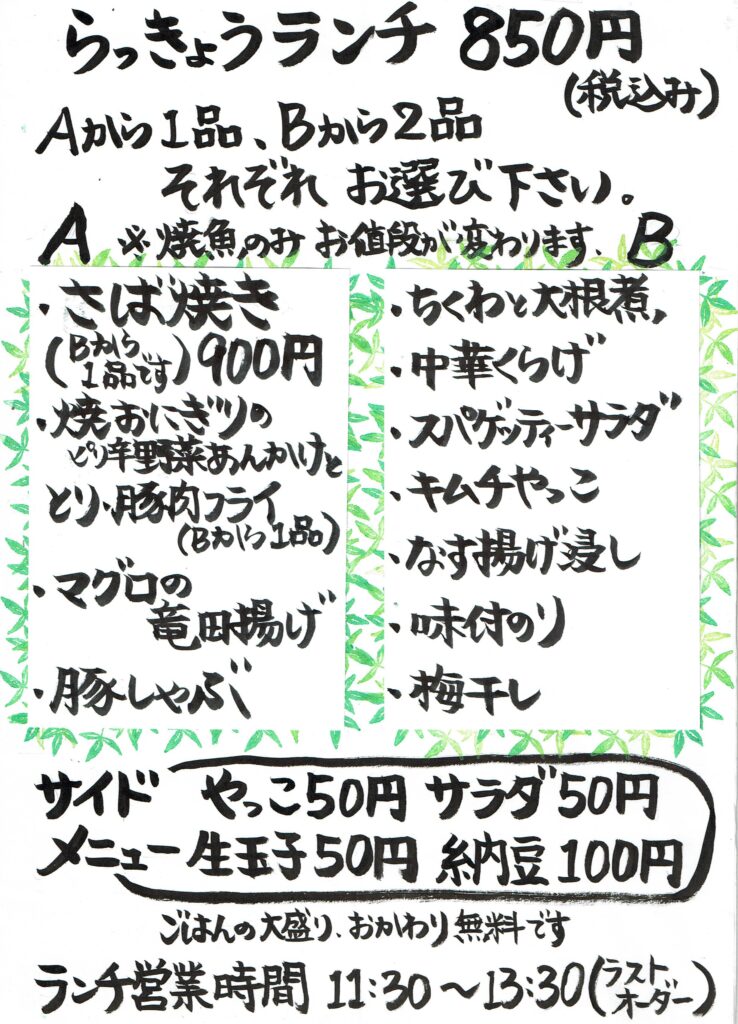 らっきょうランチ 850円
(税込み)
Aから1品、Bから2品
それぞれ お選び下さい。
A ※焼魚のみ お値段が変わります、 B
・さば焼き
(Bから1品です)900円
・焼おにぎりの
ピリ辛野菜あんかけと
とり、豚肉フライ
(Bから1品)
・マグロの
竜田揚げ
・豚しゃぶ
・ちくわと大根煮
・中華くらげ
・スパゲッティーサラダ
・キムチやっこ
・なす揚げ浸し
・味付のり
・梅干し
サイド やっこ50円 サラダ50円
メニュー 生玉子50円 納豆100円
ごはんの大盛り、おかわり無料です
ランチ営業時間 11:30〜13:30(ラストオーダー)